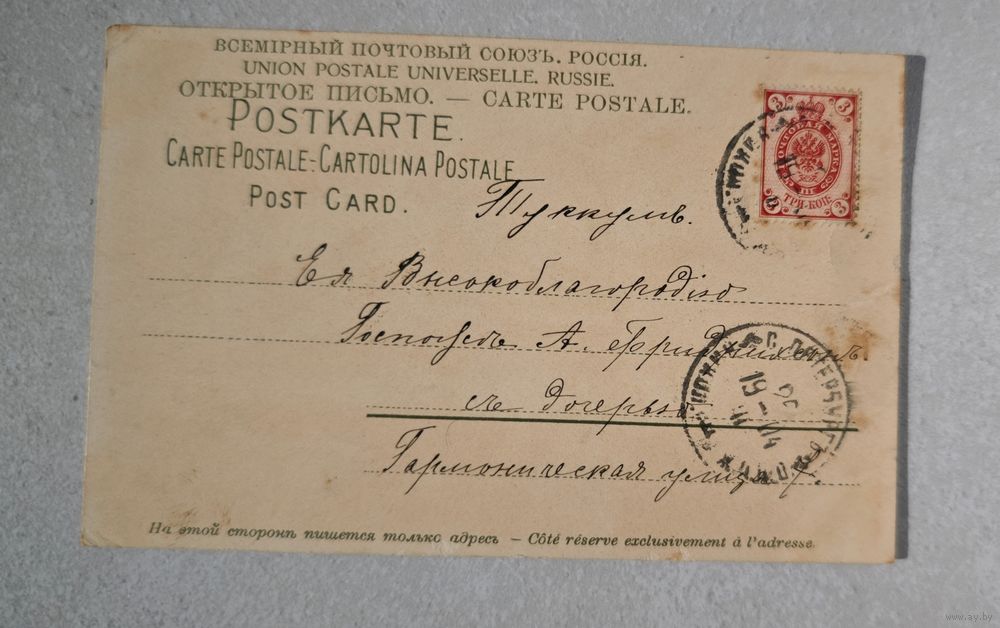 ВСЕМІРНЫЙ ПОЧТОВЫЙ СОЮЗЪ. РОССІЯ.
UNION POSTALE UNIVERSELLE. RUSSIE.
ОТКРЫТОЕ ПИСЬМО. — CARTE POSTALE.
POSTKARTE.
CARTE POSTALE-CARTOLINA POSTALE
POST CARD.
3 3
ПОЧТОВАЯ МАРКА
ТРИ КОП.
3 3
Туккумъ.
Ея Высокоблагородію
Госпожѣ А.
съ дочерью
Гармоническая улица
С. ПЕТЕРБУРГЪ
19 04
На этой сторонѣ пишется только адресъ — Côté réserve exclusivement à l'adresse.
www.ay.by